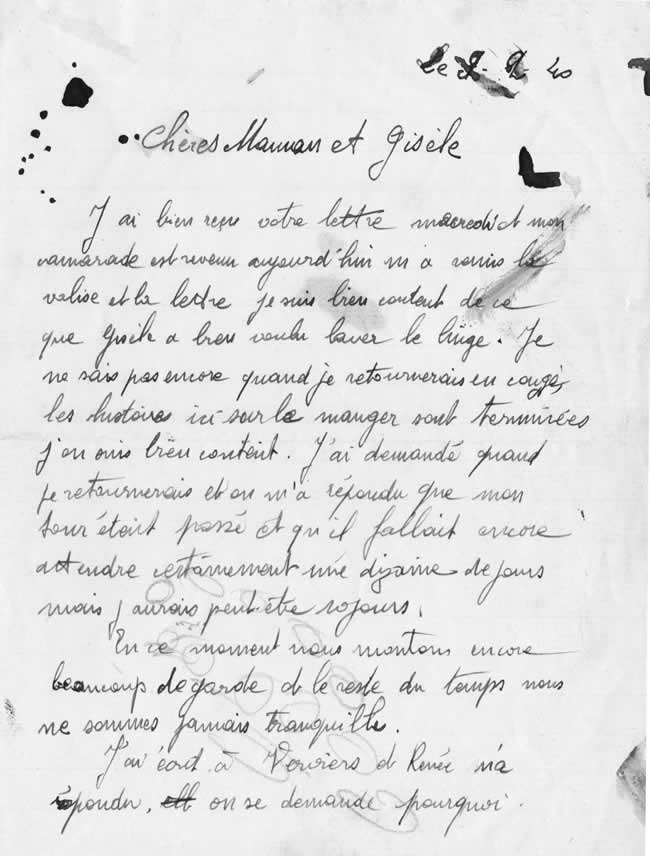 Le 40
Chères Maman et Gisèle
J ai bien reçu votre lettre mercredi et mon
camarade est revenu aujourd'hui m a remis la
valise et la lettre je suis bien content de ce
que Gisèle a bien voulu laver le linge. Je
ne sais pas encore quand je retournerais en congés,
les histoires ici sur le manger sont terminées
j'en suis bien content. J'ai demandé quand
je retournerais et on m'a répondu que mon
tour était passé et qu il fallait encore
attendre certainement une dizaine de jours
mais j aurais peut être 10 jours.
En ce moment nous montons encore
beaucoup de garde et le reste du temps nous
ne sommes jamais tranquille.
J'ai écrit à Verviers et Renée n'a
répondu, on se demande pourquoi.